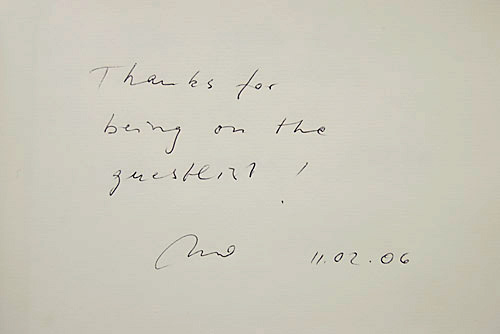 Thanks for
being on the
guestlist !
11.02.06